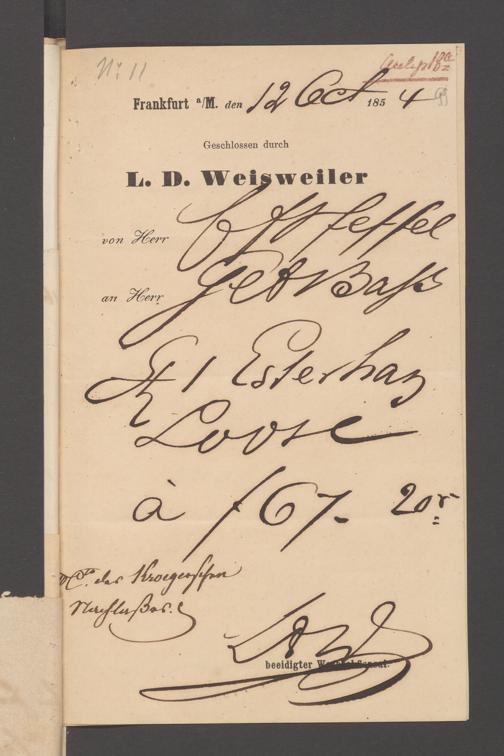 No 11
Frankfurt a/M. den 12 Oct 1854
99
Geschlossen durch
L. D. Weisweiler
von Herr
an Herr Gebr Bass
St 1 Esterhazy
Loose
à f 67. 20
des Kroegerschen
Nachlasses
beeidigter Wechselsensal.